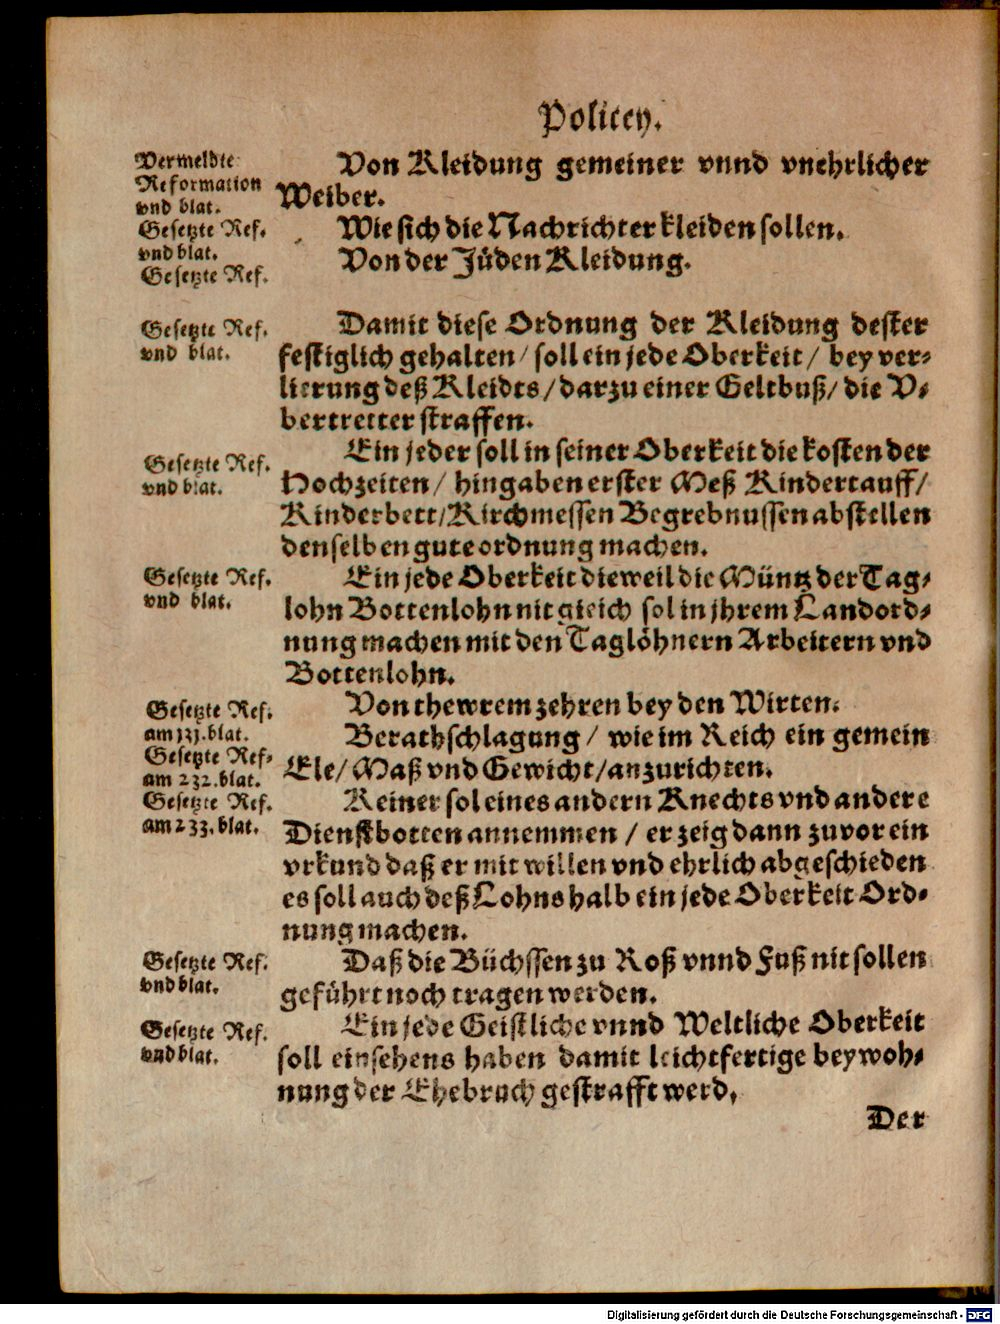 Policey.
Vermeldte
Reformation
vnd blat.
Von Kleidung gemeiner vnnd vnehrlicher
Weiber.
Gesetzte Ref.
vnd blat.
Wie sich die Nachrichter kleiden sollen.
Gesetzte Ref.
Von der Jüden Kleidung.
Gesetzte Ref.
vnd blat.
Damit diese Ordnung der Kleidung dester
festiglich gehalten / soll ein jede Oberkeit / bey ver-
lierung deß Kleidts / darzu einer Geltbuß / die V-
bertretter straffen.
Gesetzte Ref.
vnd blat.
Ein jeder soll in seiner Oberkeit die kosten der
Hochzeiten / hingaben erster Meß Kindertauff /
Kinderbett / Kirchmessen Begrebnussen abstellen
denselben gute ordnung machen.
Gesetzte Ref.
vnd blat.
Ein jede Oberkeit dieweil die Müntz der Tag-
lohn Bottenlohn nit gleich sol in jhrem Landord-
nung machen mit den Taglöhnern Arbeitern vnd
Bottenlohn.
Gesetzte Ref.
am 131. blat.
Von thewrem zehren bey den Wirten.
Gesetzte Ref.
am 232. blat.
Berathschlagung / wie im Reich ein gemein
Ele / Maß vnd Gewicht / anzurichten.
Gesetzte Ref.
am 233. blat.
Keiner sol eines andern Knechts vnd andere
Dienstbotten annemmen / er zeig dann zuvor ein
vrkund daß er mit willen vnd ehrlich abgeschieden
es soll auch deß Lohns halb ein jede Oberkeit Ord-
nung machen.
Gesetzte Ref.
vnd blat.
Daß die Büchssen zu Roß vnnd Fuß nit sollen
geführt noch tragen werden.
Gesetzte Ref.
vnd blat.
Ein jede Geistliche vnnd Weltliche Oberkeit
soll einsehens haben damit leichtfertige beywoh-
nung der Ehebruch gestrafft werd.
Der
Digitalisierung gefördert durch die Deutsche Forschungsgemeinschaft - DFG